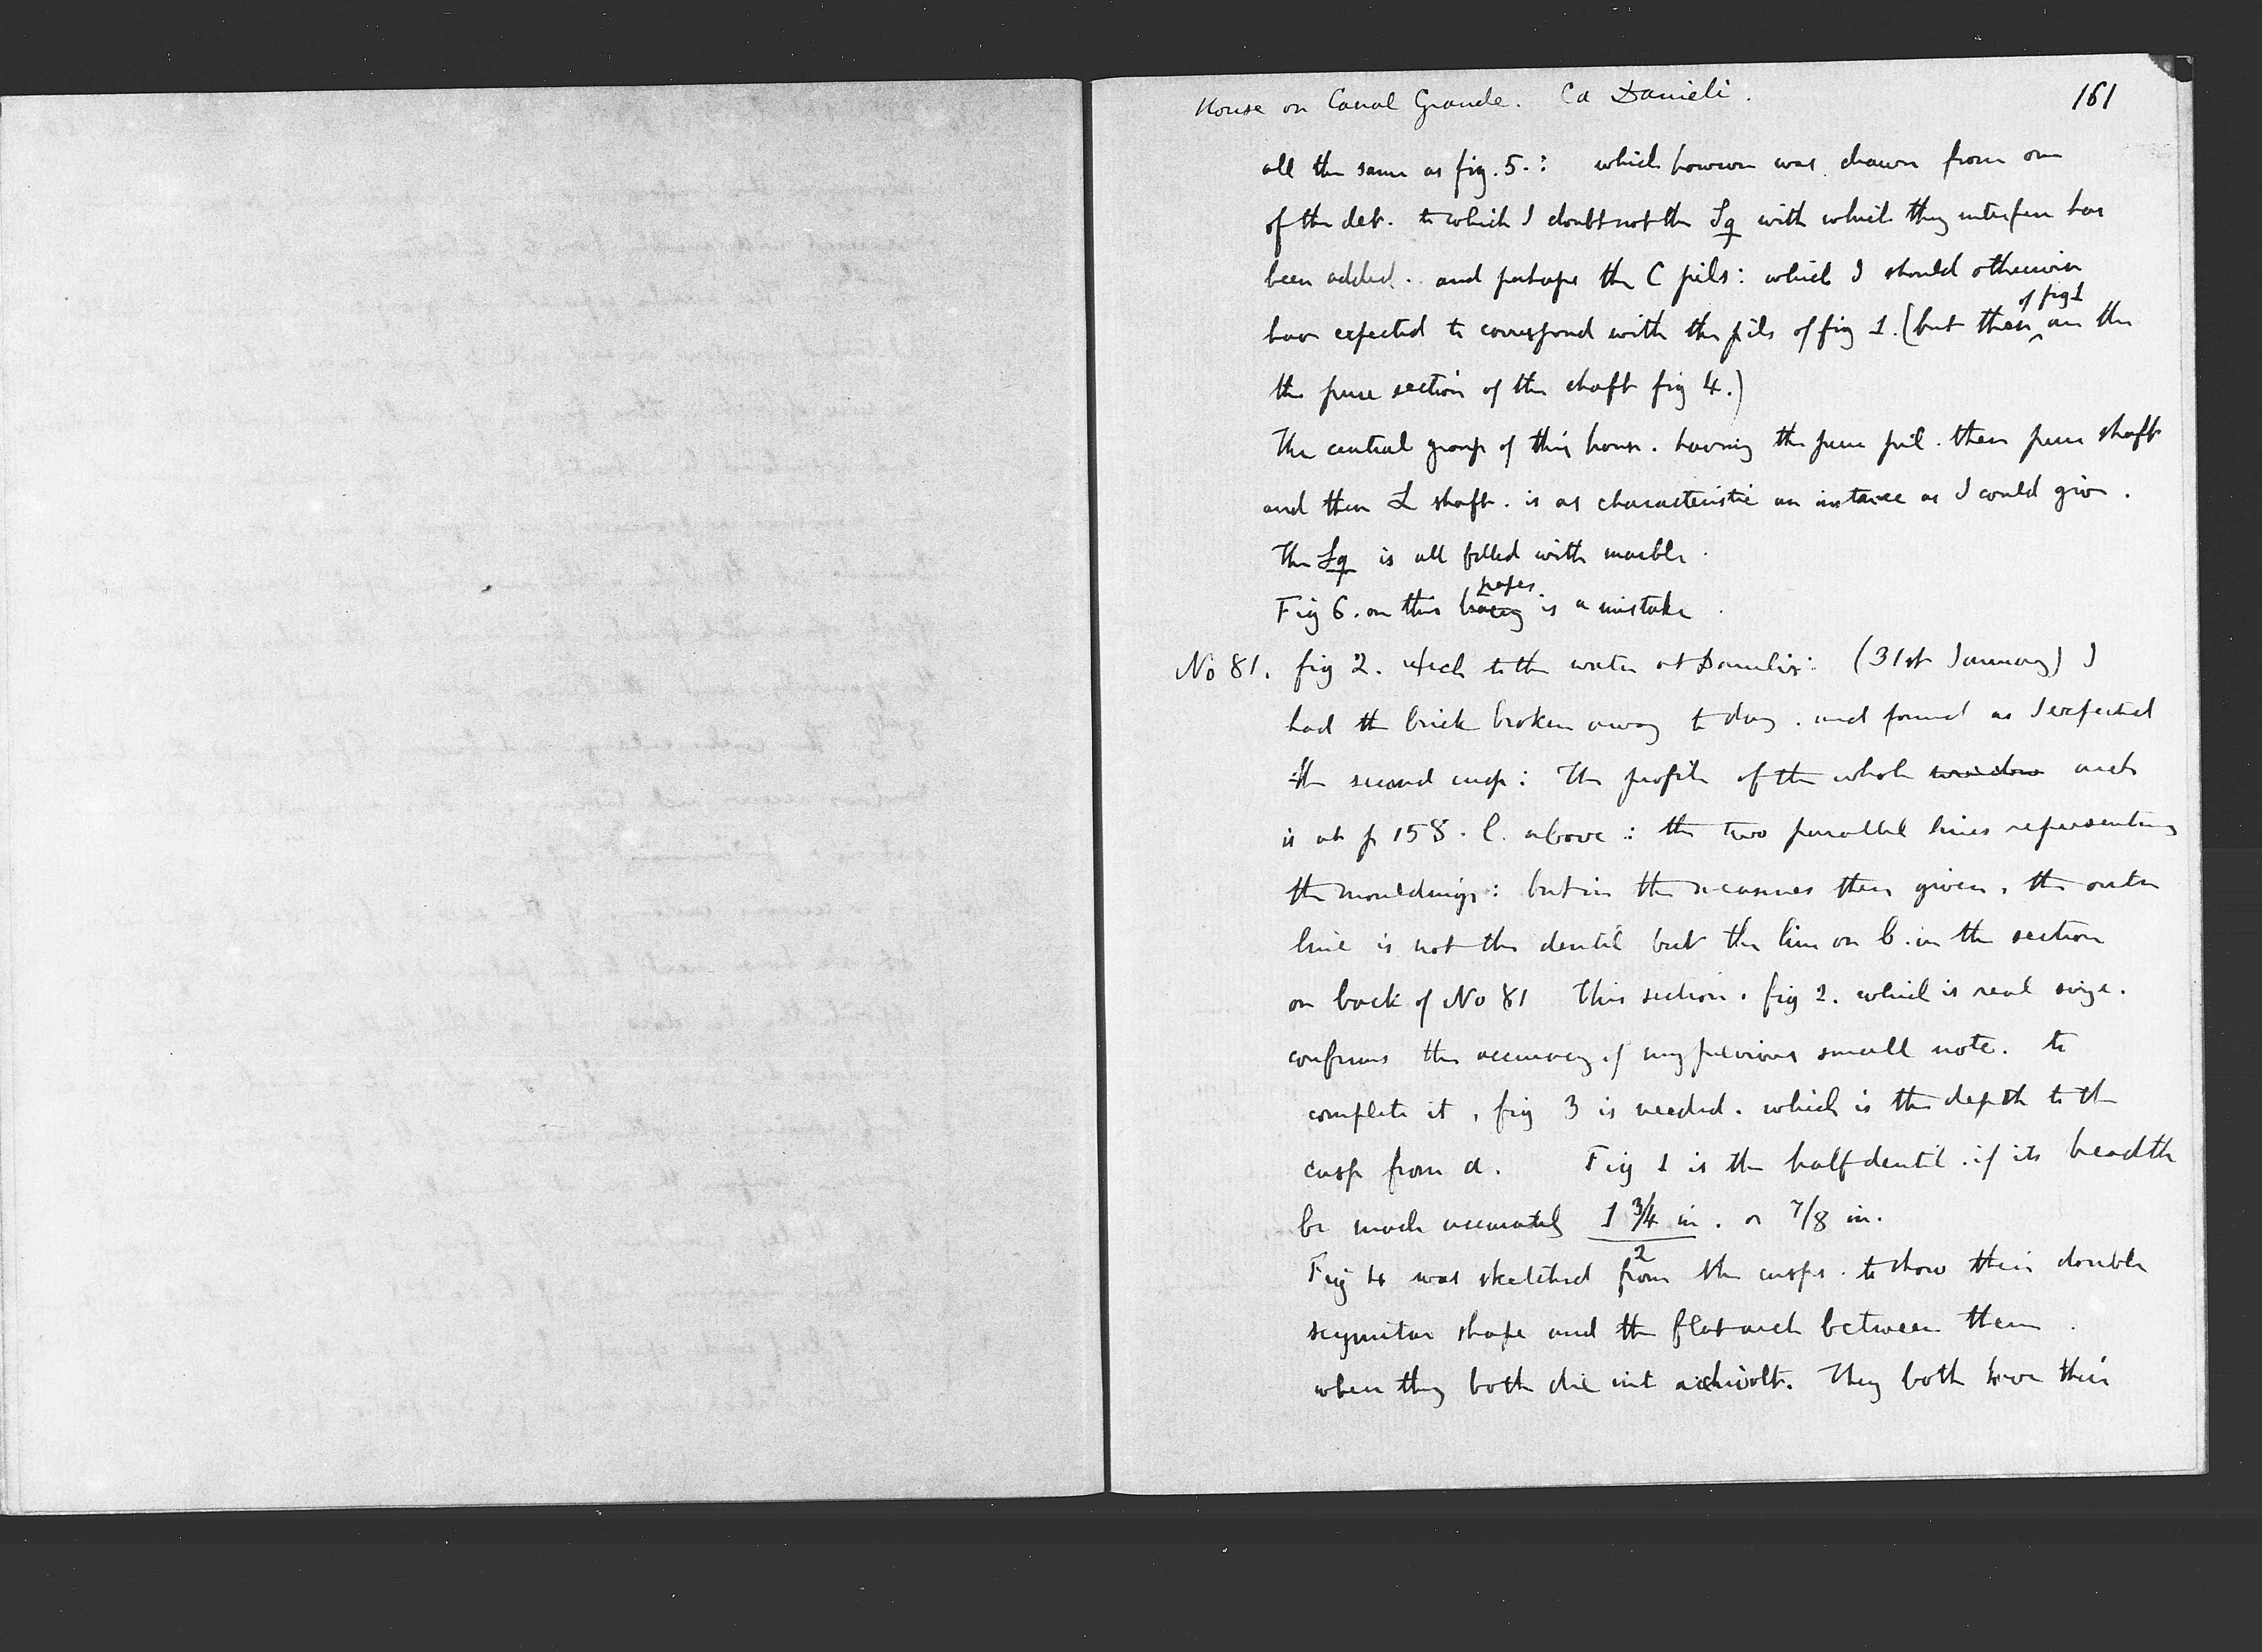 House on Canal Grande. Ca Danieli. 161
all the same as fig. 5.: which however was drawn from one
of the det. to which I doubt not the Sq with which they interfere has
been added. and perhaps the C pils: which I should otherwise
of fig 1
have expected to correspond with the pils of fig 1. (but these are the
the pure section of the shaft fig 4.)
The central group of this house. having the pure pil. then pure shaft
and then L shaft. is as characteristic an instance as I could give.
The Sq is all filled with marble.
paper.
Fig 6. on this is a mistake.
No 81. fig 2. Arch to the water at Danielis: (31st January) I
had the brick broken away to day. and found as I expected
the second cusp: The profile of the whole window arch
is at p 158. l. above: the two parallel lines representing
the mouldings: but in the measures then given, the outer
line is not the dentil but the line on b. in the section
on back of No 81 This section, fig 2. which is real size.
confirms the accuracy of my previous small note. to
complete it, fig 3 is needed. which is the depth to the
cusp from a. Fig 1 is the half dentil. if its breadth
be made accurately 1 3/4 in. or 7/8 in.
2
Fig 4 was sketched from the cusps. to show their double
scymitar shape and the flat arch between them.
when they both die int archivolt. They both have their